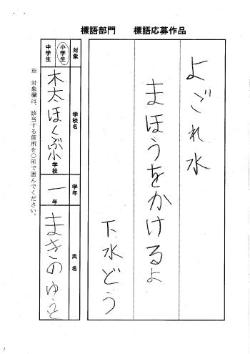 標語部門　標語応募作品
よごれ水
まほうをかけるよ
下水どう
対象
小学生
中学生
学校名
木太ほくぶ小学校
学年
一年
氏名
まきのゆうと
※ 対象欄は、該当する箇所を○で囲んでください。